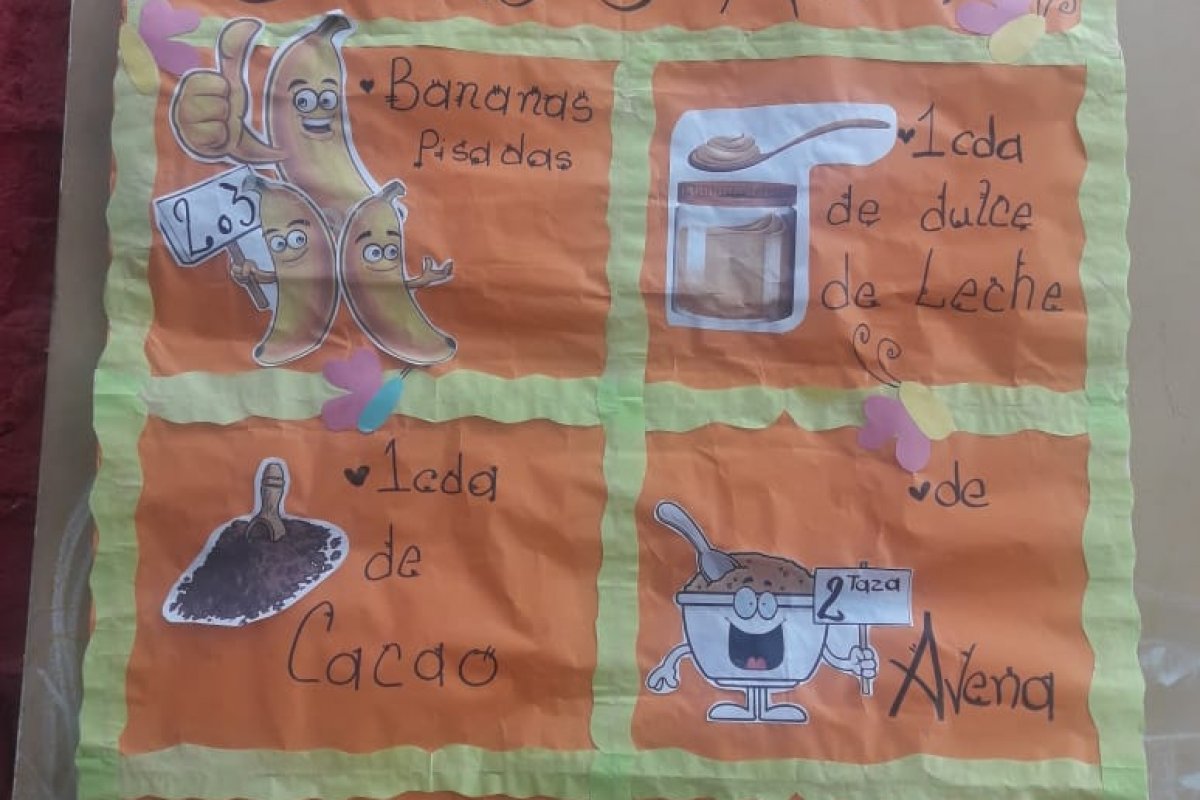 Bananas
Pisadas
2 o 3
1 cda
de dulce
de Leche
1 cda
de
Cacao
de
2 Taza
Avena